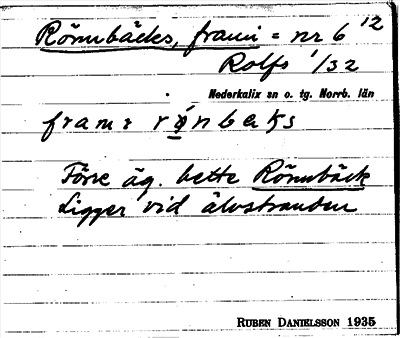 Rönnbäcks, frami = nr 6 12
Rolfs 1/32
Nederkalix sn o. tg. Norrb. län
Förre äg. hette Rönnbäck
Ligger vid älvstranden
RUBEN DANIELSSON 1935